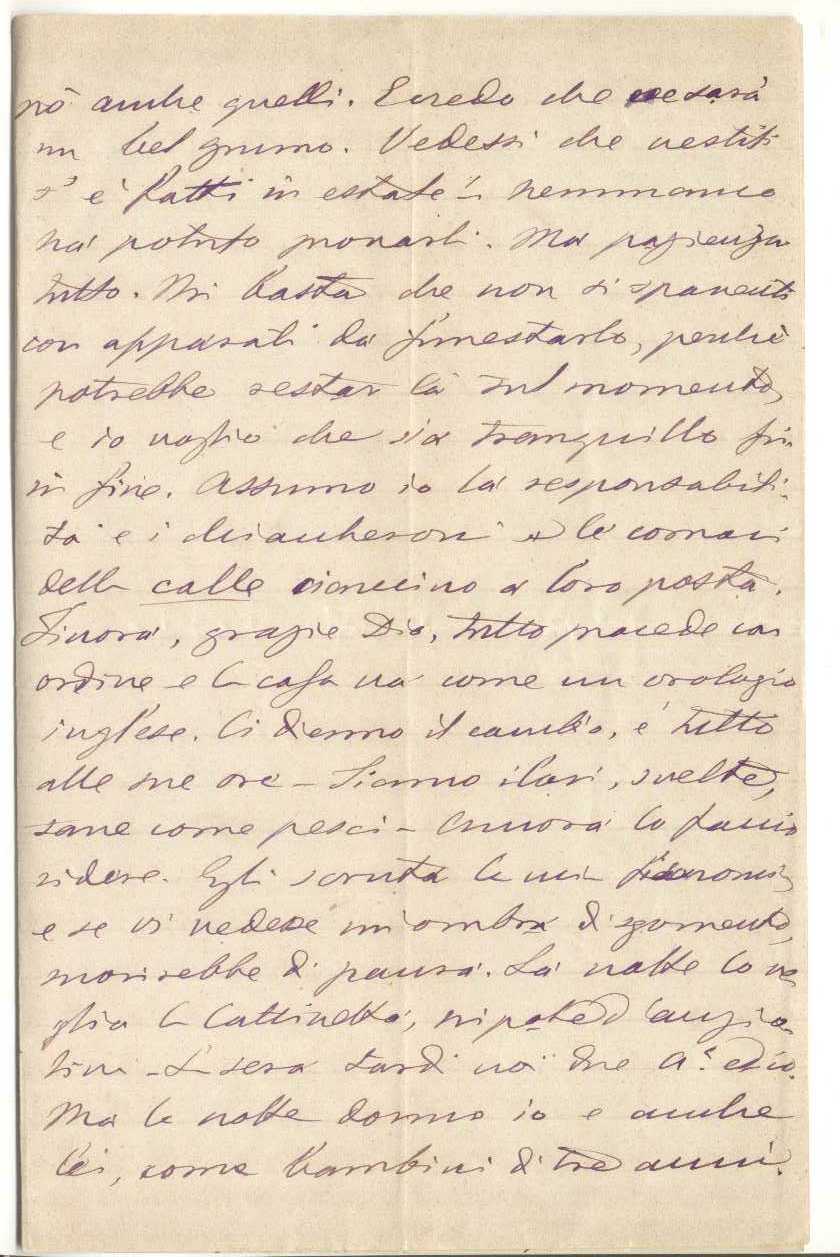 nò anche quelli. E credo che ce sarà
un bel grumo. Vedessi che vestiti
s'è fatti in estate! - nemmanco
ha potuto provarli. Ma pazienza
tutto. Mi basta che non si spaventi
con apparati da funestarlo, perchè
potrebbe restar là sul momento,
e io voglio che sia tranquillo fin
in fine. Assumo io la responsabili-
tà e i chiaccheroni e le comari
della calle ciancino a loro posta.
Finora, grazie Dio, tutto procede con
ordine e la casa va come un orologio
inglese. Ci diamo il cambio, è tutto
alle sue ore - Siamo ilari, svelte,
sane come pesci - Ancora lo faccio
ridere. Egli scruta la mia fisonomia,
e se vi vedesse un'ombra di sgomento,
morirebbe di paura. La notte lo ve-
glia la Cattinetta, nipote d'Angio-
lina - La sera tardi noi due A.ª ed io.
Ma la notte dormo io e anche
lei, come bambini di tre anni.